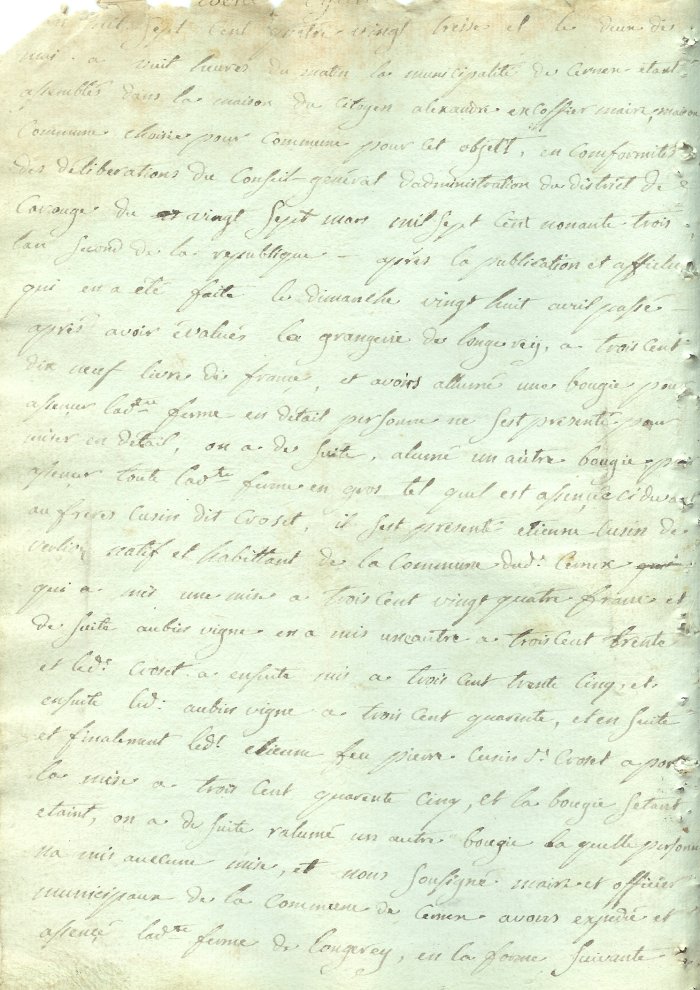 mil sept cent quatre vingt treise et le deux de
mai a huit heures du matin la municipalité de Cernex etant
assemblés dans la maison du citoyen alexandre excoffier maire, maison
Commune choisie pour Commune pour cet objet, en conformité
des déliberations du Conseil général d'administration du district de
Carouge du vingt sept mars mil sept cent nonante trois
lan second de la republique – après la publication et affiche
qui en a été faite le dimanche vingt huit avril passé –
après avoir évalués la grangerie de longerey, a trois cent
dix neuf livre de france, et avoirs allumé une bougie pou
assencer ladte ferme en détail personne ne sest présenté pour
miser en détail, on a de suite, alumé un autre bougie po
assencer toute ladte ferme en gros tel quel est assencée ci dev
au freres Cusin dit Croset, il sest présenté etienne Cusin de
natif et habittant de la Commune dudt Cernex
qui a mis une mise a trois cent vingt quatre franc et
de suite aubin vigne en a mis un autre a trois cent trente
et ledt Croset a ensuite mis a trois cent trente cinq, et
ensuite ledt aubin vigne a trois cent quarente, et en suite
et finalement ledt etienne feu pierre Cusin dt Croset a porté
la mise a trois cent quarente cinq, et la bougie setant
etaint, on a de suite ralumé un autre bougie la quelle personne
na mis aucune mise, et nous sousigné maire et officier
municipaux de la Commune de Cernex avons expedié et
assencé ladte ferme de longerey, en la forme suivante